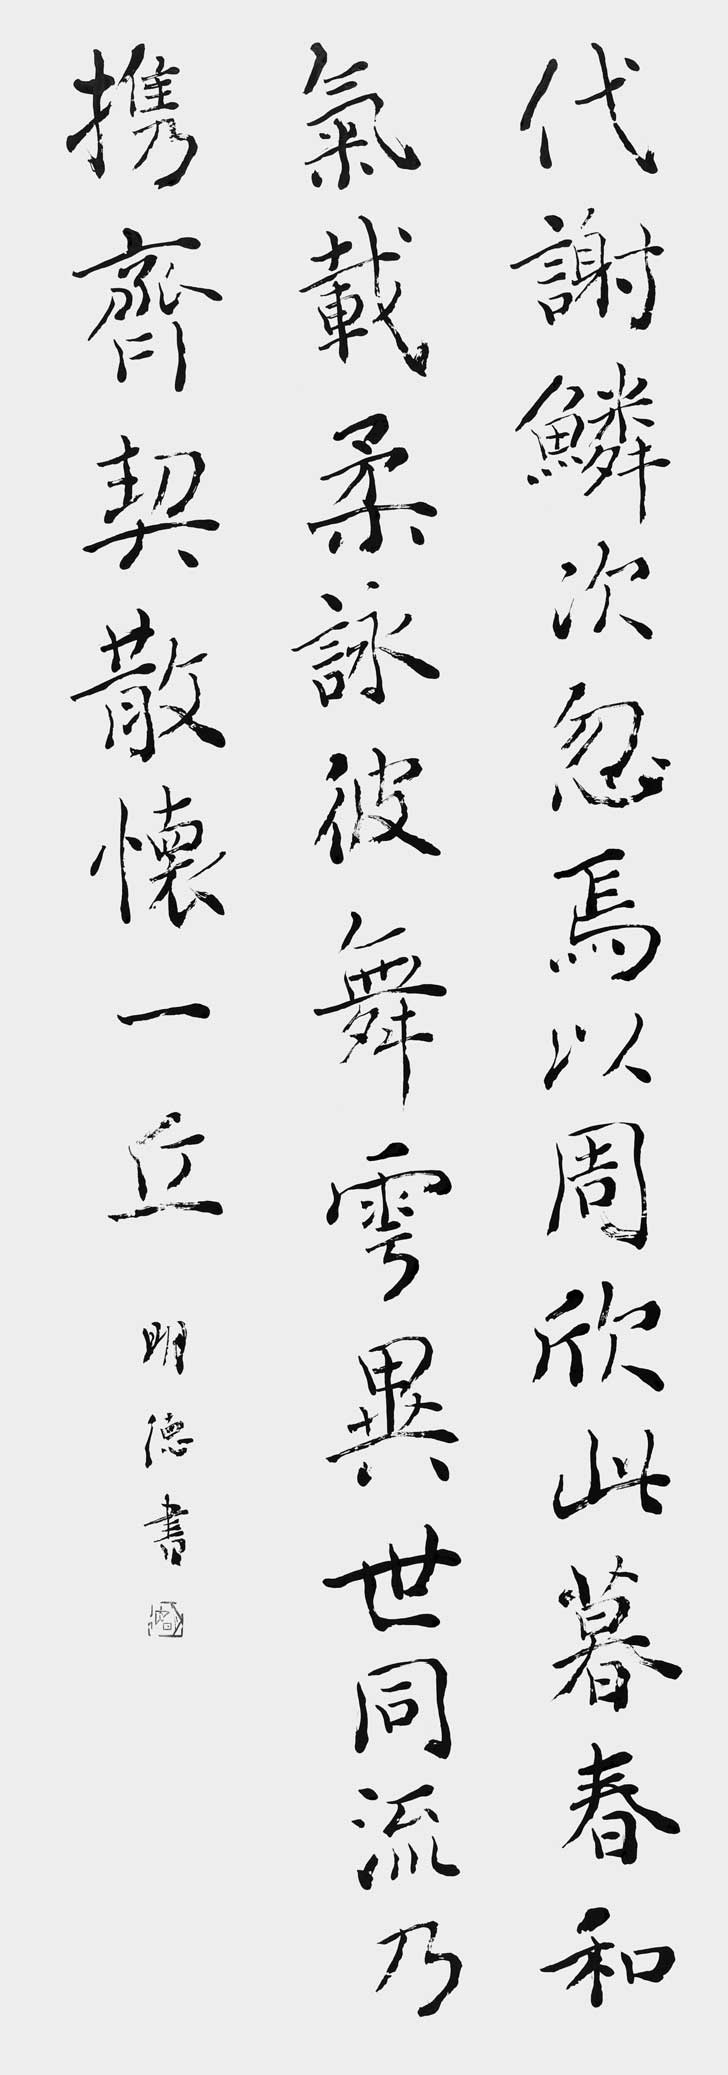 代謝鱗次忽焉以周欣此暮春和
氣載柔詠彼舞雩異世同流乃
携齊契散懷一丘
明德書